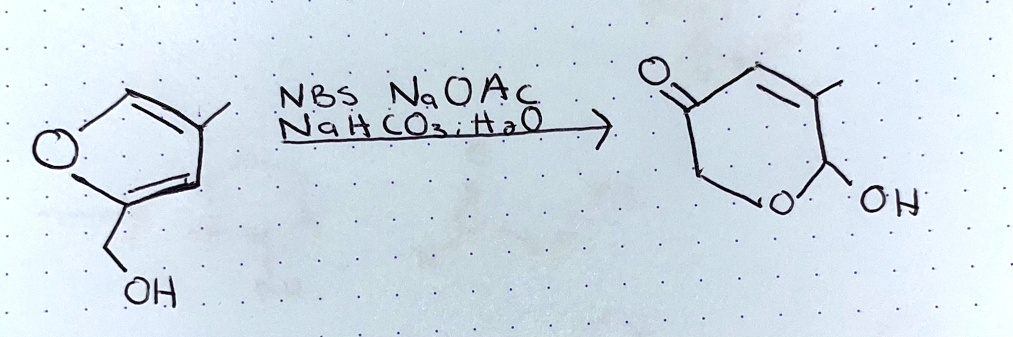 O
NBS NaOAc
NaHCO3, H2O
O
OH
O
OH